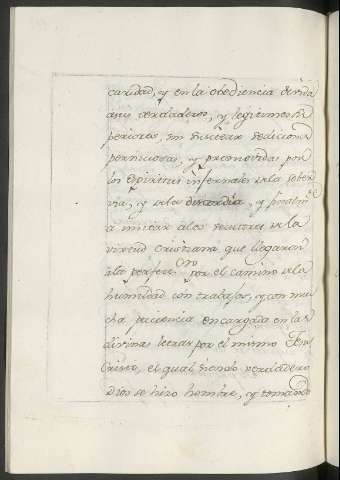 caridad, y en la obediencia devida
a sus verdaderos, y legitimos Su
periores, sin suscitar sediciones
perniciosas, y promovidas por
los espiritus infernales de la sober
via, y de la discordia, y finalm.te
a imitar a los sectores de la
virtud Cristiana que llegaron
a la perfec.on por el camino de la
humildad con trabajos, y con mu
cha paciencia encargada en las
divinas letras por el mismo Jesu
Cristo, el qual siendo verdadero
Dios se hizo hombre, y tomando